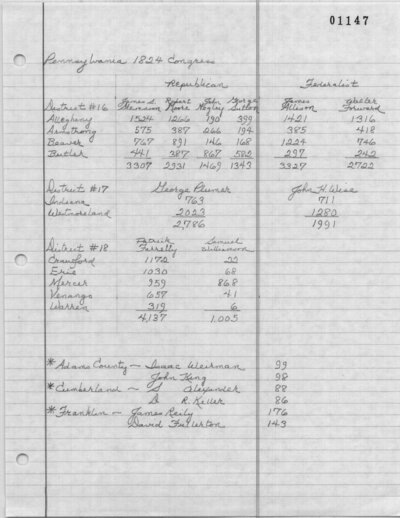 01147
Pennsylvania 1824 Congress
Republican Federalist
District #16 James S. Stevenson Robert Moore John Negley George Sutton James Allison Walter Forward
Allegheny 1524 1266 190 399 1421 1316
Armstrong 575 387 266 194 385 418
Beaver 767 891 146 168 1224 746
Butler 441 387 867 582 297 242
3307 2931 1469 1343 3327 2722
District #17 George Plumer John H Wise
Indiana 763 711
Westmoreland 2023 1280
2,786 1991
District #18 Patrick Farrelly Samuel Williamson
Crawford 1172 22
Erie 1030 68
Mercer 959 868
Venango 657 41
Warren 319 6
4,137 1,005
*Adams County ~ Isaac Weirman 99
John King 98
*Cumberland ~ S Alexander 88
D R. Keller 86
*Franklin ~ James Reily 176
David Fullerton 143